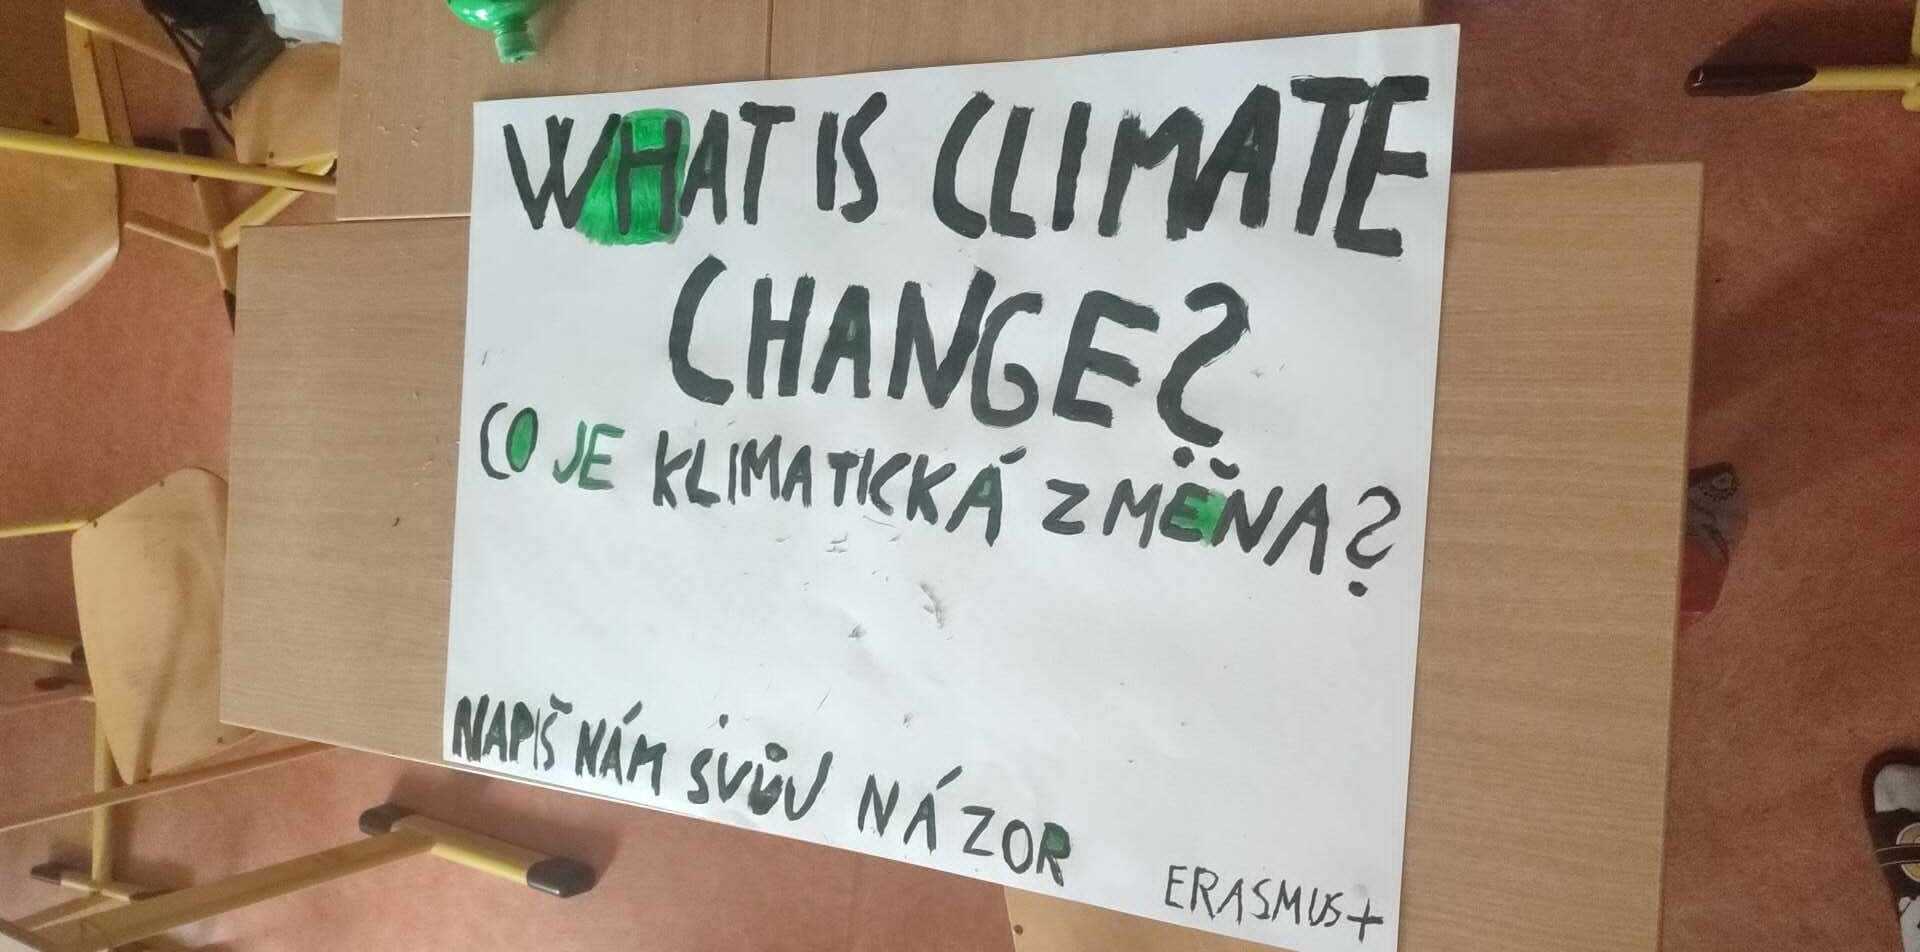 WHAT IS CLIMATE
CHANGE?
CO JE KLIMATICKÁ ZMĚNA?
NAPIŠ NÁM SVŮJ NÁZOR
ERASMUS+